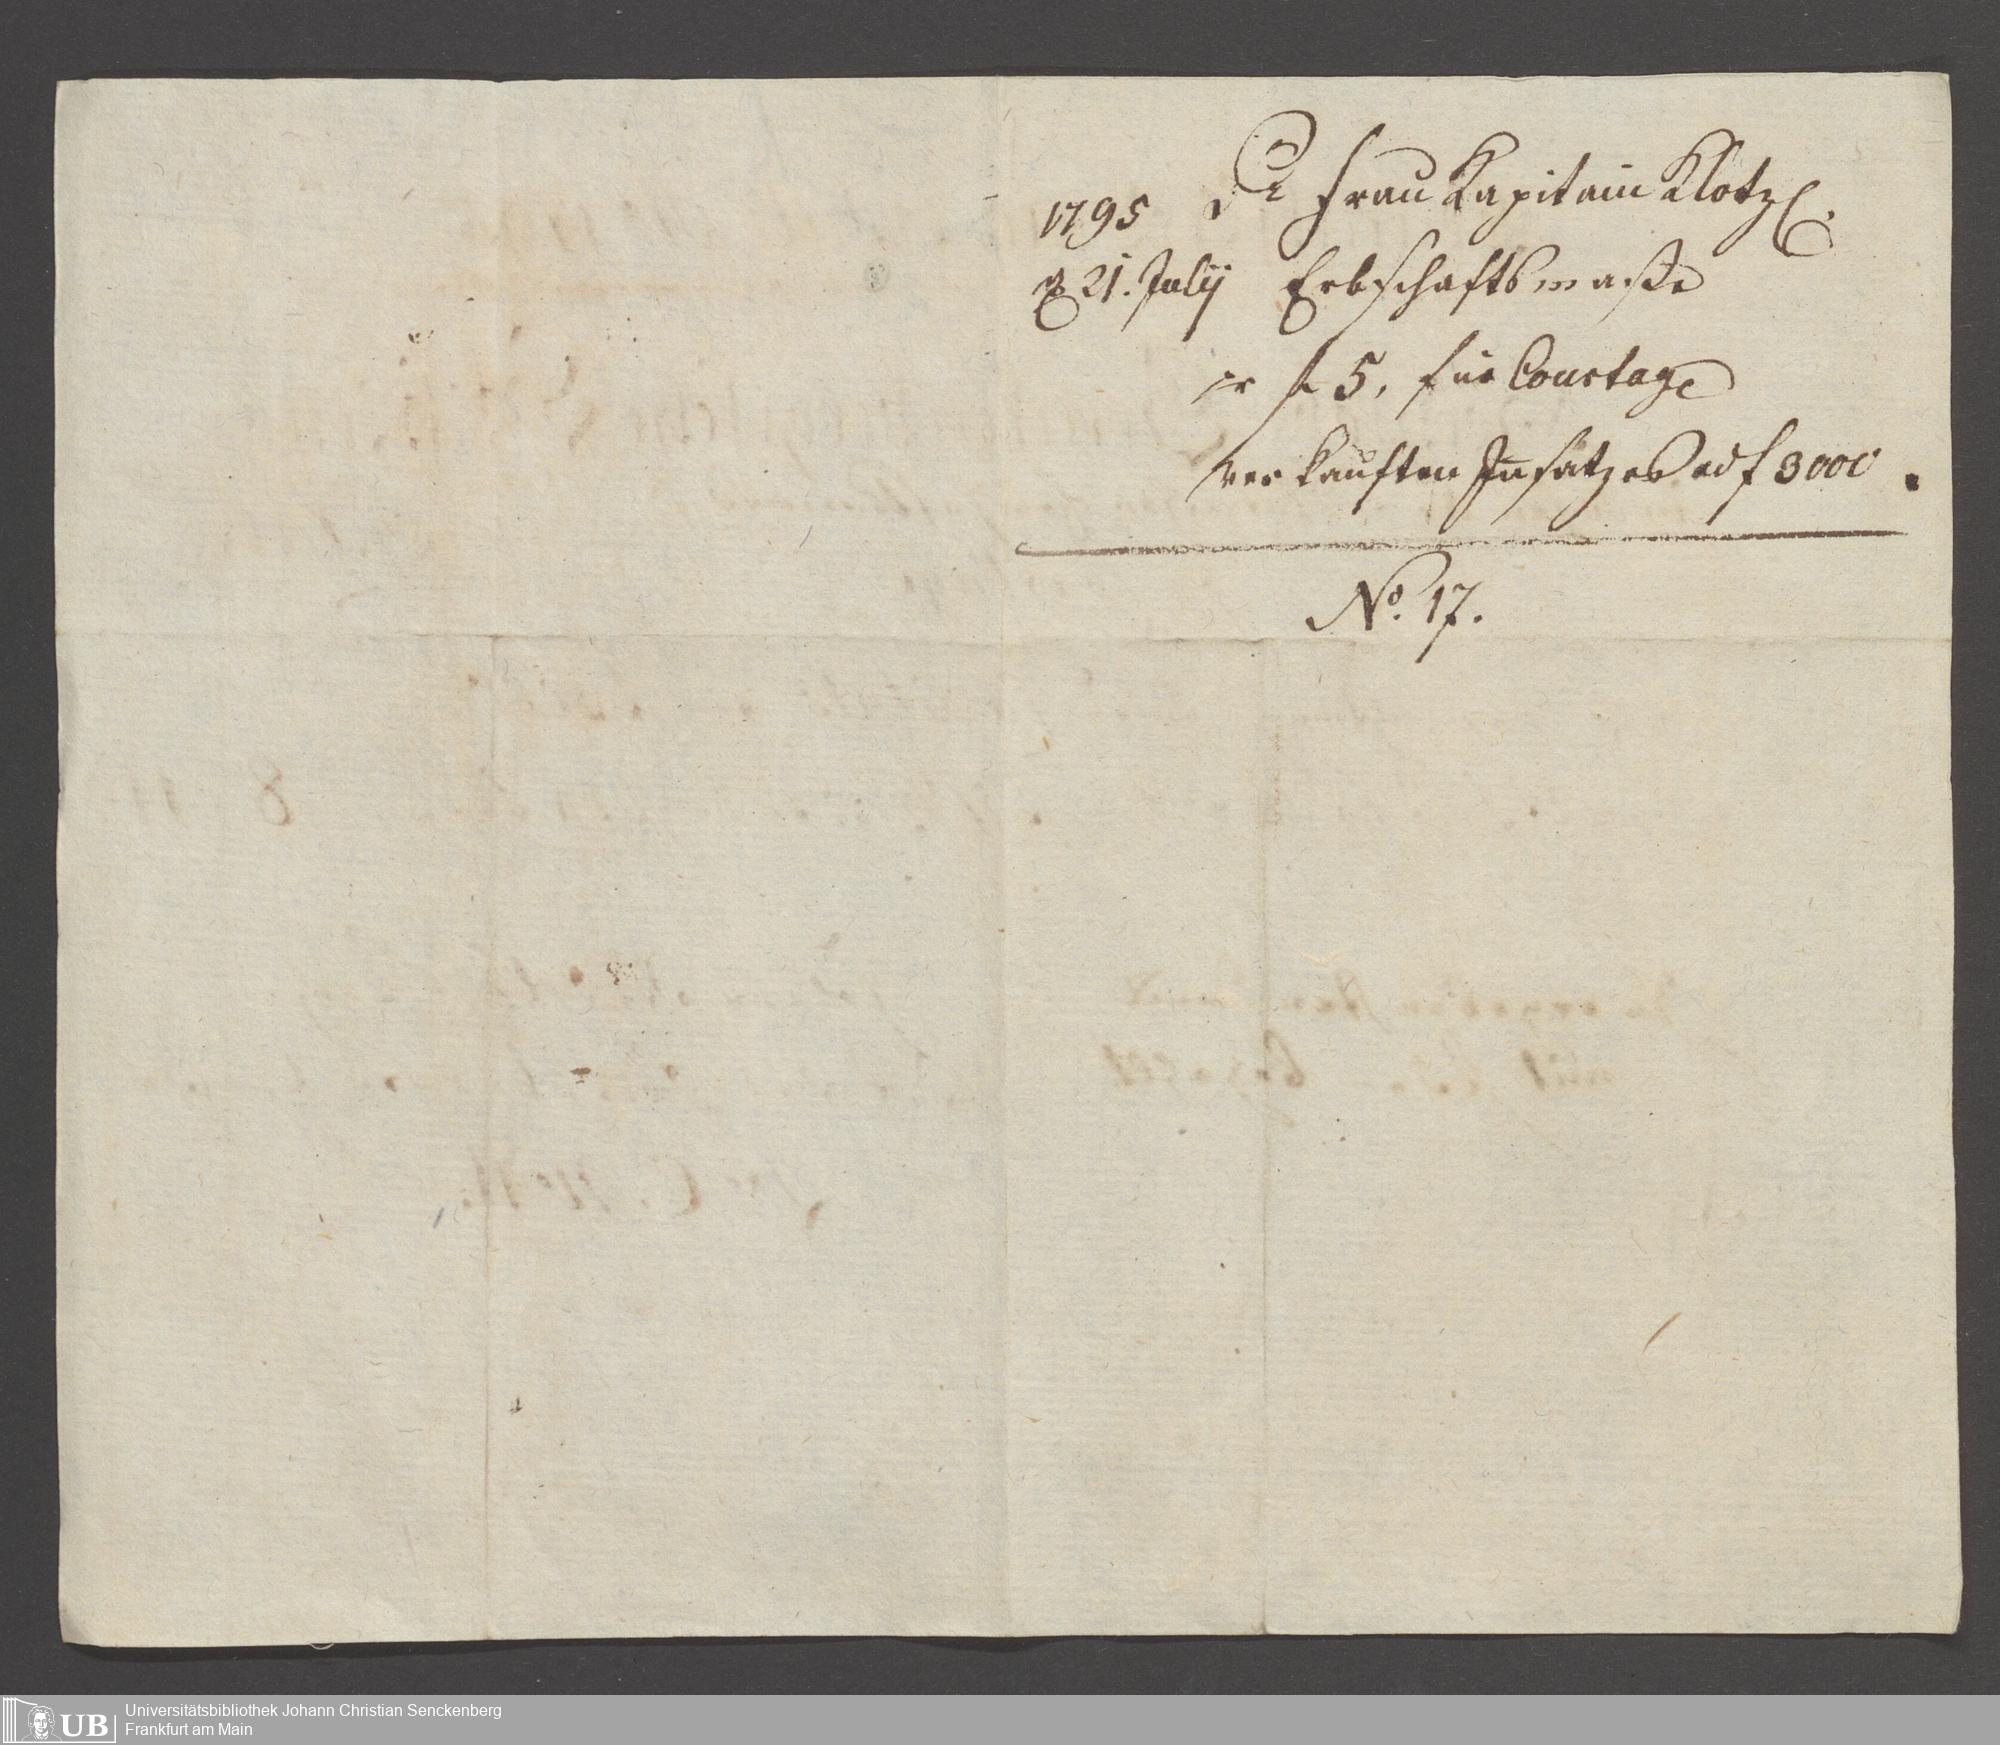 1795 Frau Kapitain Klotz
21. July Erbschaftsmaße
pr f 5, für Courtage
verkauften Insatzes ad f 3000.
No. 17.
UB
Universitätsbibliothek Johann Christian Senckenberg
Frankfurt am Main